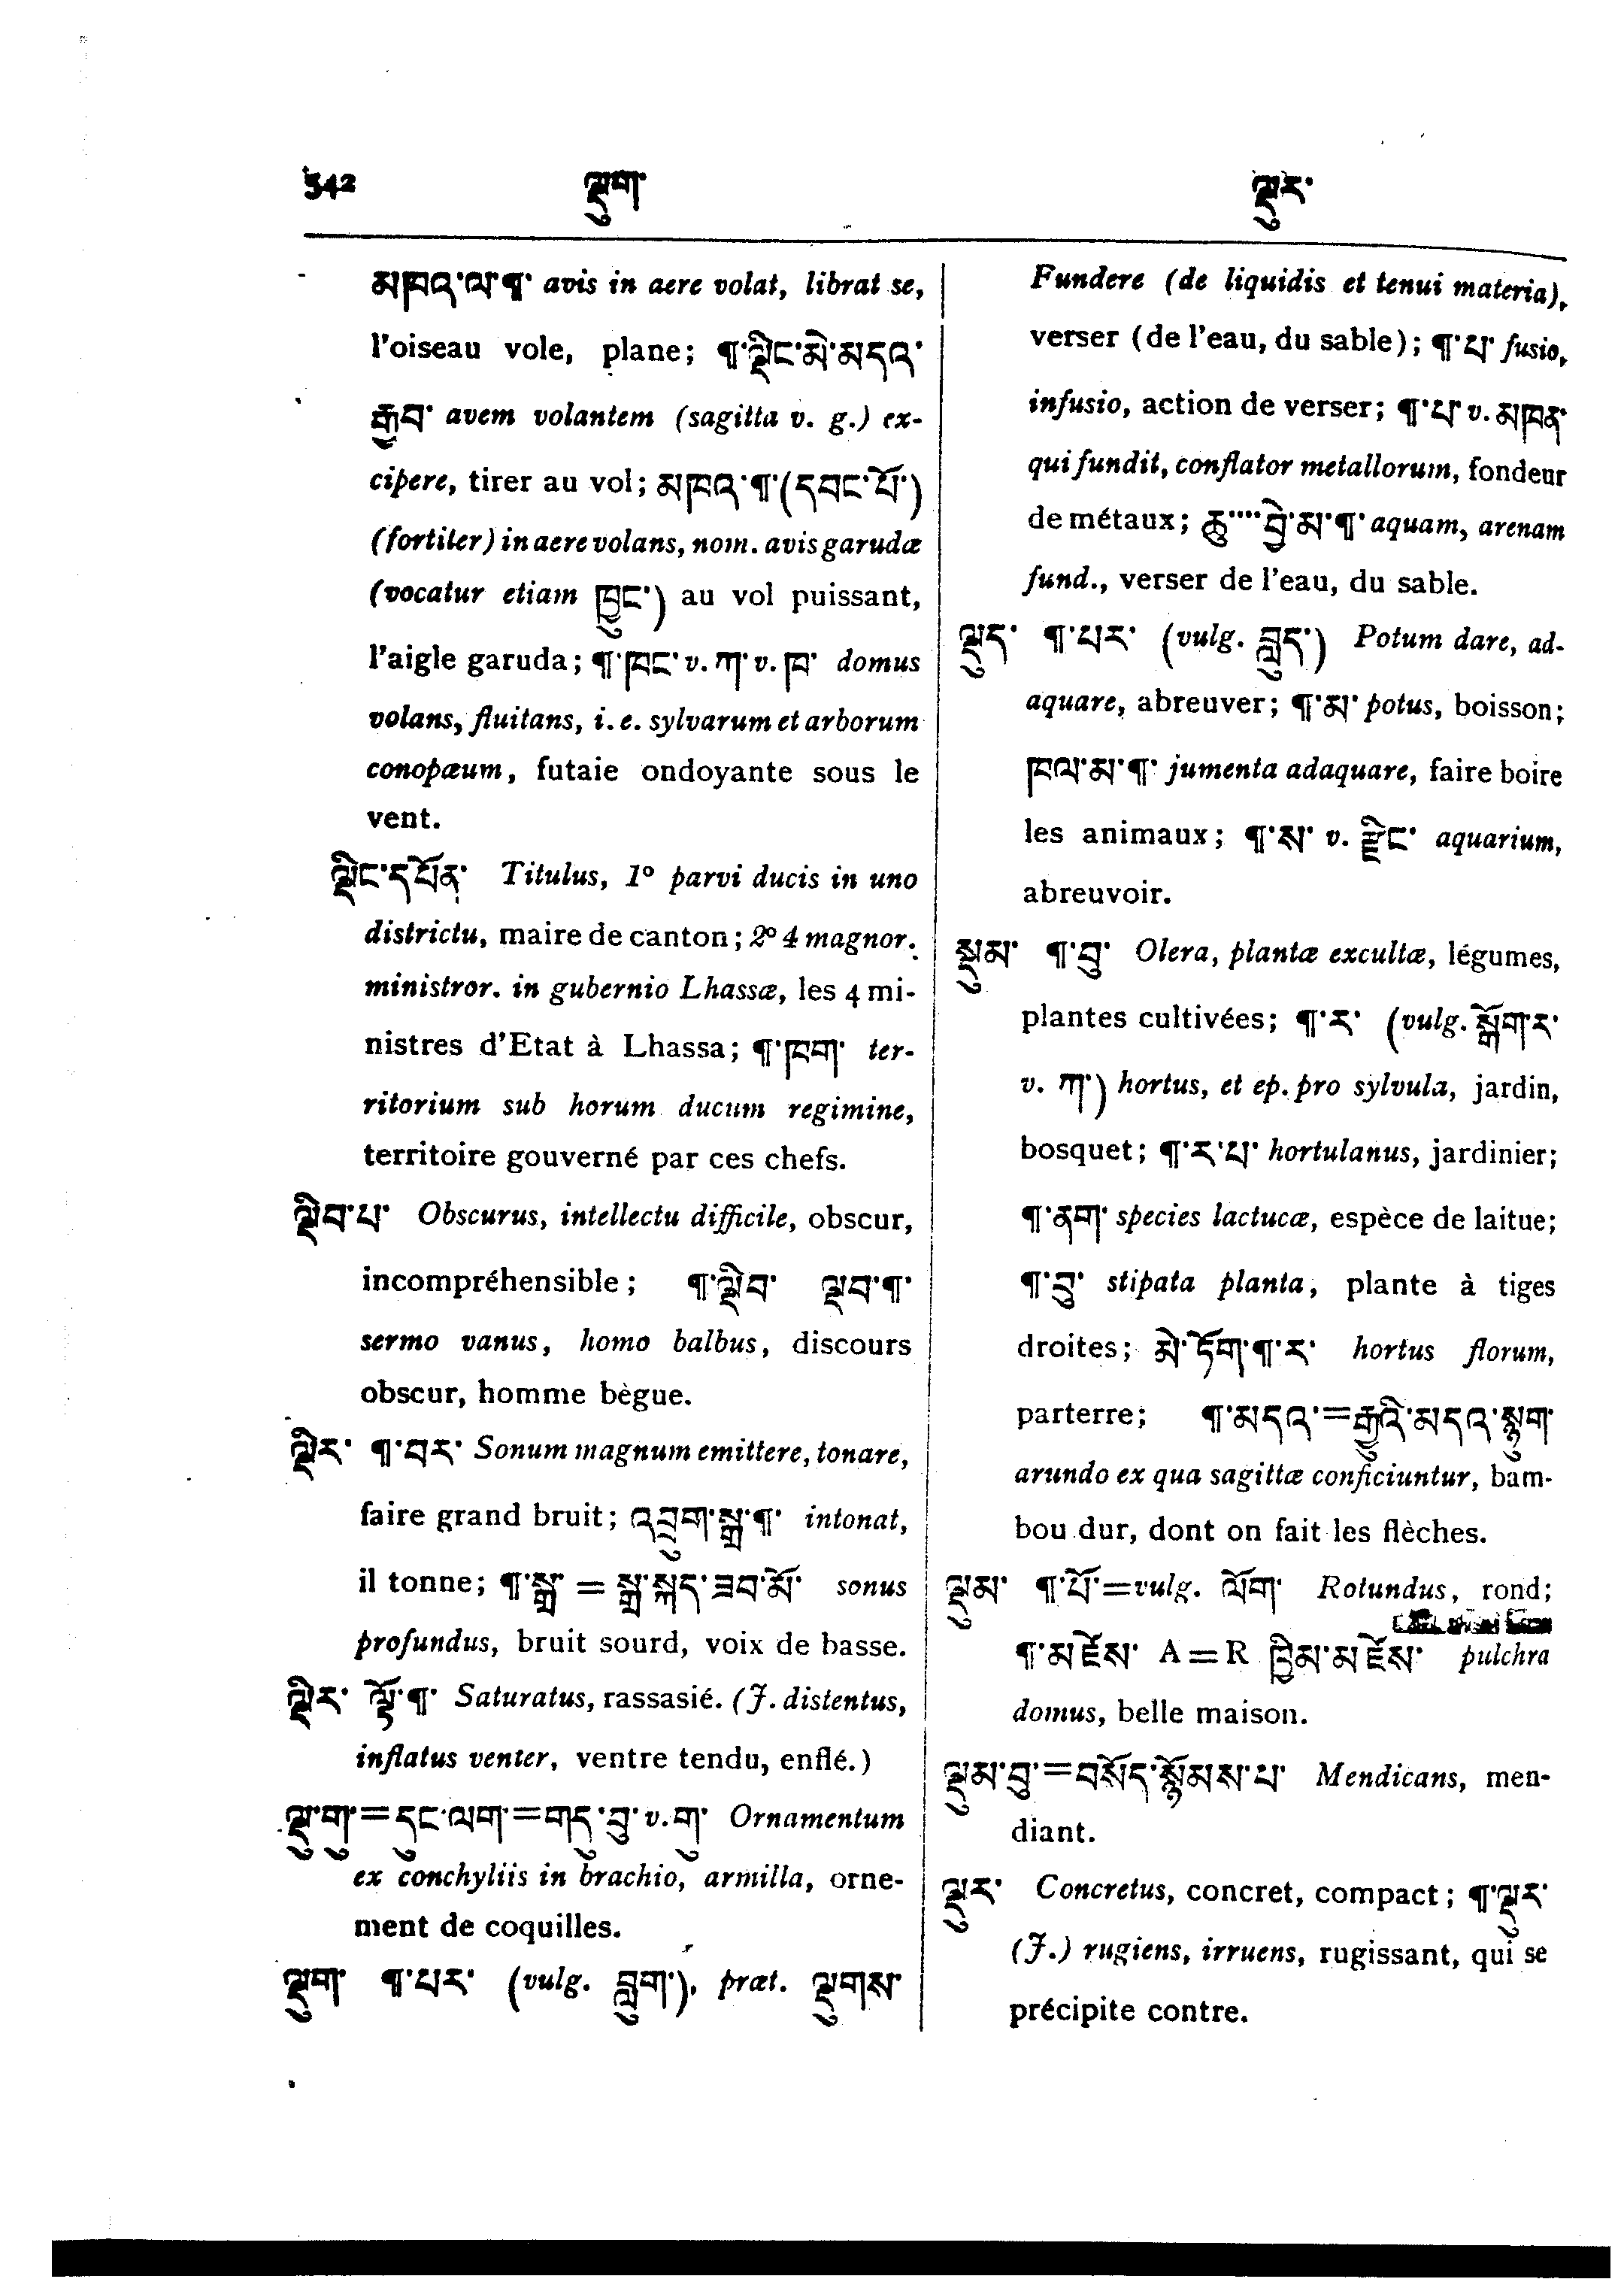 542 ལྡུག་ ལྡུར་
མཁའ་ལ་¶་ avis in aere volat, librat se,
l'oiseau vole, plane; ¶་ལྡིང་མེ་མདའ་
རྒྱབ་ avem volantem (sagitta v. g.) ex-
cipere, tirer au vol; མཁའ་¶་(དབང་པོ་)
(fortiter) in aere volans, nom. avis garudæ
(vocatur etiam ཁྱུང་) au vol puissant,
l'aigle garuda; ¶་ཁང་ v. ཀ་ v. ཁ་ domus
volans, fluitans, i. e. sylvarum et arborum
conopæum, futaie ondoyante sous le
vent.
ལྡིང་དཔོན་ Titulus, 1º parvi ducis in uno
districtu, maire de canton; 2º 4 magnor.
ministror. in gubernio Lhassæ, les 4 mi-
nistres d'Etat à Lhassa; ¶་ཁག་ ter-
ritorium sub horum ducum regimine,
territoire gouverné par ces chefs.
ལྡིབ་པ་ Obscurus, intellectu difficile, obscur,
incompréhensible; ¶་ལྡིབ་ ལྡབ་¶་
sermo vanus, homo balbus, discours
obscur, homme bègue.
ལྡིར་ ¶་བར་ Sonum magnum emittere, tonare,
faire grand bruit; འབྲུག་སྒྲ་¶་ intonat,
il tonne; ¶་སྒྲ་ = སྒྲ་སྐད་ཟབ་མོ་ sonus
profundus, bruit sourd, voix de basse.
ལྡིར་ ལྟོ་¶་ Saturatus, rassasié. (J. distentus,
inflatus venter, ventre tendu, enflé.)
ལྡུ་གུ་=དུང་ལག་=གདུ་བུ་ v. གུ་ Ornamentum
ex conchyliis in brachio, armilla, orne-
ment de coquilles.
ལྡུག་ ¶་པར་ (vulg. བླུག་), præt. ལྡུགས་
Fundere (de liquidis et tenui materia),
verser (de l'eau, du sable); ¶་པ་ fusio,
infusio, action de verser; ¶་པ་ v. མཁན་
qui fundit, conflator metallorum, fondeur
de métaux; ཆུ་····བྱེ་མ་¶་ aquam, arenam
fund., verser de l'eau, du sable.
ལྡུད་ ¶་པར་ (vulg. བླུད་) Potum dare, ad-
aquare, abreuver; ¶་མ་ potus, boisson;
ཁལ་མ་¶་ jumenta adaquare, faire boire
les animaux; ¶་ས་ v. རྫིང་ aquarium,
abreuvoir.
སྡུམ་ ¶་བུ་ Olera, plantæ excultæ, légumes,
plantes cultivées; ¶་ར་ (vulg. སྒོག་ར་
v. ཀ་) hortus, et ep. pro sylvula, jardin,
bosquet; ¶་ར་པ་ hortulanus, jardinier;
¶་ནག་ species lactucæ, espèce de laitue;
¶་བུ་ stipata planta, plante à tiges
droites; མེ་ཏོག་¶་ར་ hortus florum,
parterre; ¶་མདའ་=རྒྱུའི་མདའ་སྙུག་
arundo ex qua sagittæ conficiuntur, bam-
bou dur, dont on fait les flèches.
ལྡུམ་ ¶་པོ་=vulg. ལོག་ Rotundus, rond;
¶་མཛེས་ A = R ཁྱིམ་མཛེས་ pulchra
domus, belle maison.
ལྡུམ་བུ་=བསོད་སྙོམས་པ་ Mendicans, men-
diant.
ལྡུར་ Concretus, concret, compact; ¶་ལྡུར་
(J.) rugiens, irruens, rugissant, qui se
précipite contre.